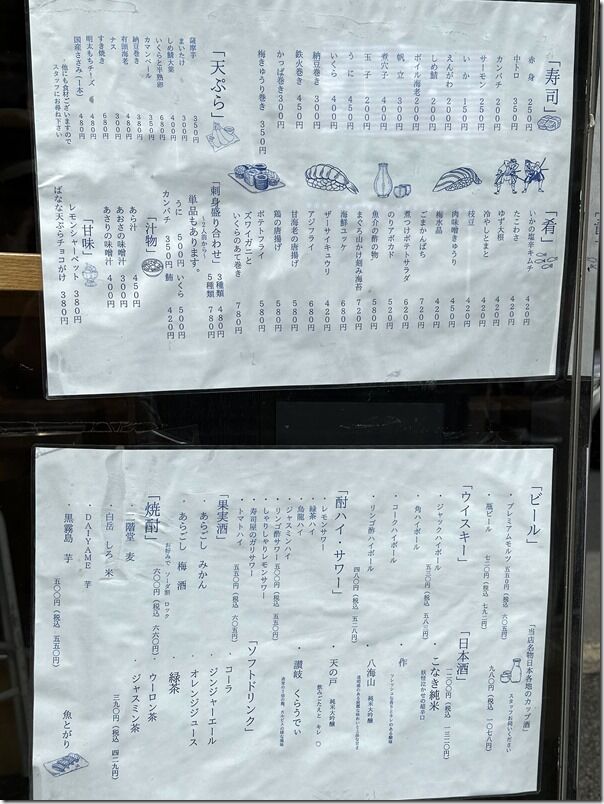 「寿司」
赤身 250円
中トロ 350円
カンパチ 200円
サーモン 250円
いか 150円
えんがわ 200円
しめ鯖 200円
ボイル海老 200円
帆立 300円
煮穴子 400円
玉子 200円
うに 450円
いくら 400円
納豆巻き 300円
鉄火巻き 450円
かっぱ巻き 300円
梅きゅうり巻き 350円
「天ぷら」
薩摩芋 350円
まいたけ 300円
しめ鯖大葉 400円
いくらと半熟卵 680円
カマンベール 350円
納豆巻き 380円
有頭海老 480円
ナス 300円
すき焼き 680円
明太もちチーズ 480円
国産ささみ(1本) 480円
他にも食材ございますので
スタッフにお尋ね下さい
「肴」
いかの塩辛キムチ 420円
たこわさ 420円
ゆず大根 420円
冷やしとまと 420円
枝豆 420円
肉味噌きゅうり 450円
梅水晶 420円
ごまかんぱち
煮つけポテトサラダ 620円
のりアボカド 520円
魚介の酢の物 580円
まぐろ山かけ刻み海苔 720円
海鮮ユッケ 680円
ザーサイキュウリ 420円
アジフライ 680円
甘海老の唐揚げ 580円
鶏の唐揚げ 580円
ポテトフライ 580円
ズワイガニと
いくらのあて巻き 780円
「刺身盛り合わせ」 3種類 480円
〜2点前から〜 5種類 780円
単品もあります。
うに 500円 いくら 500円
カンパチ 350円 鮪 420円
「汁物」
あら汁 450円
あおさの味噌汁 300円
あさりの味噌汁 400円
「甘味」
レモンシャーベット 380円
ばなな天ぷらチョコがけ 380円
「ビール」
・プレミアムモルツ 五五〇円(税込 六〇五円)
・瓶ビール 七二〇円(税込 七九二円)
「ウイスキー」
・ジャックハイボール
・角ハイボール 五三〇円(税込 五八三円)
・コークハイボール
・リンゴ酢ハイボール
「酎ハイ・サワー」 四八〇円(税込 五二八円)
・レモンサワー
・緑茶ハイ
・烏龍ハイ
・ジャスミンハイ
・リンゴ酢サワー 五〇〇円(税込 五五〇円)
・しゃりしゃりレモンサワー
・寿司屋のガリサワー
・トマトハイ 五五〇円(税込 六〇五円)
「果実酒」
・あらごし みかん
・あらごし 梅酒
「焼酎」 お好みで ソーダ割 ロック
・二階堂 麦 六〇〇円(税込 六六〇円)
・白岳 しろ 米
・DAIYAME 芋
・黒霧島 芋 五〇〇円(税込 五五〇円)
「当店名物日本各地のカップ酒」
スタッフお伺いください
九八〇円(税込 一〇七八円)
「日本酒」 一二〇〇円(税込 一三二〇円)
・こなき純米
妖怪泣かせの超辛口
・作
・八海山 純米大吟醸
・天の戸 純米大吟醸
・讃岐 くらうでぃ
「ソフトドリンク」
・コーラ
・ジンジャーエール
・オレンジジュース
・緑茶
・ウーロン茶
・ジャスミン茶
三九〇円(税込 四二九円)
魚とがり